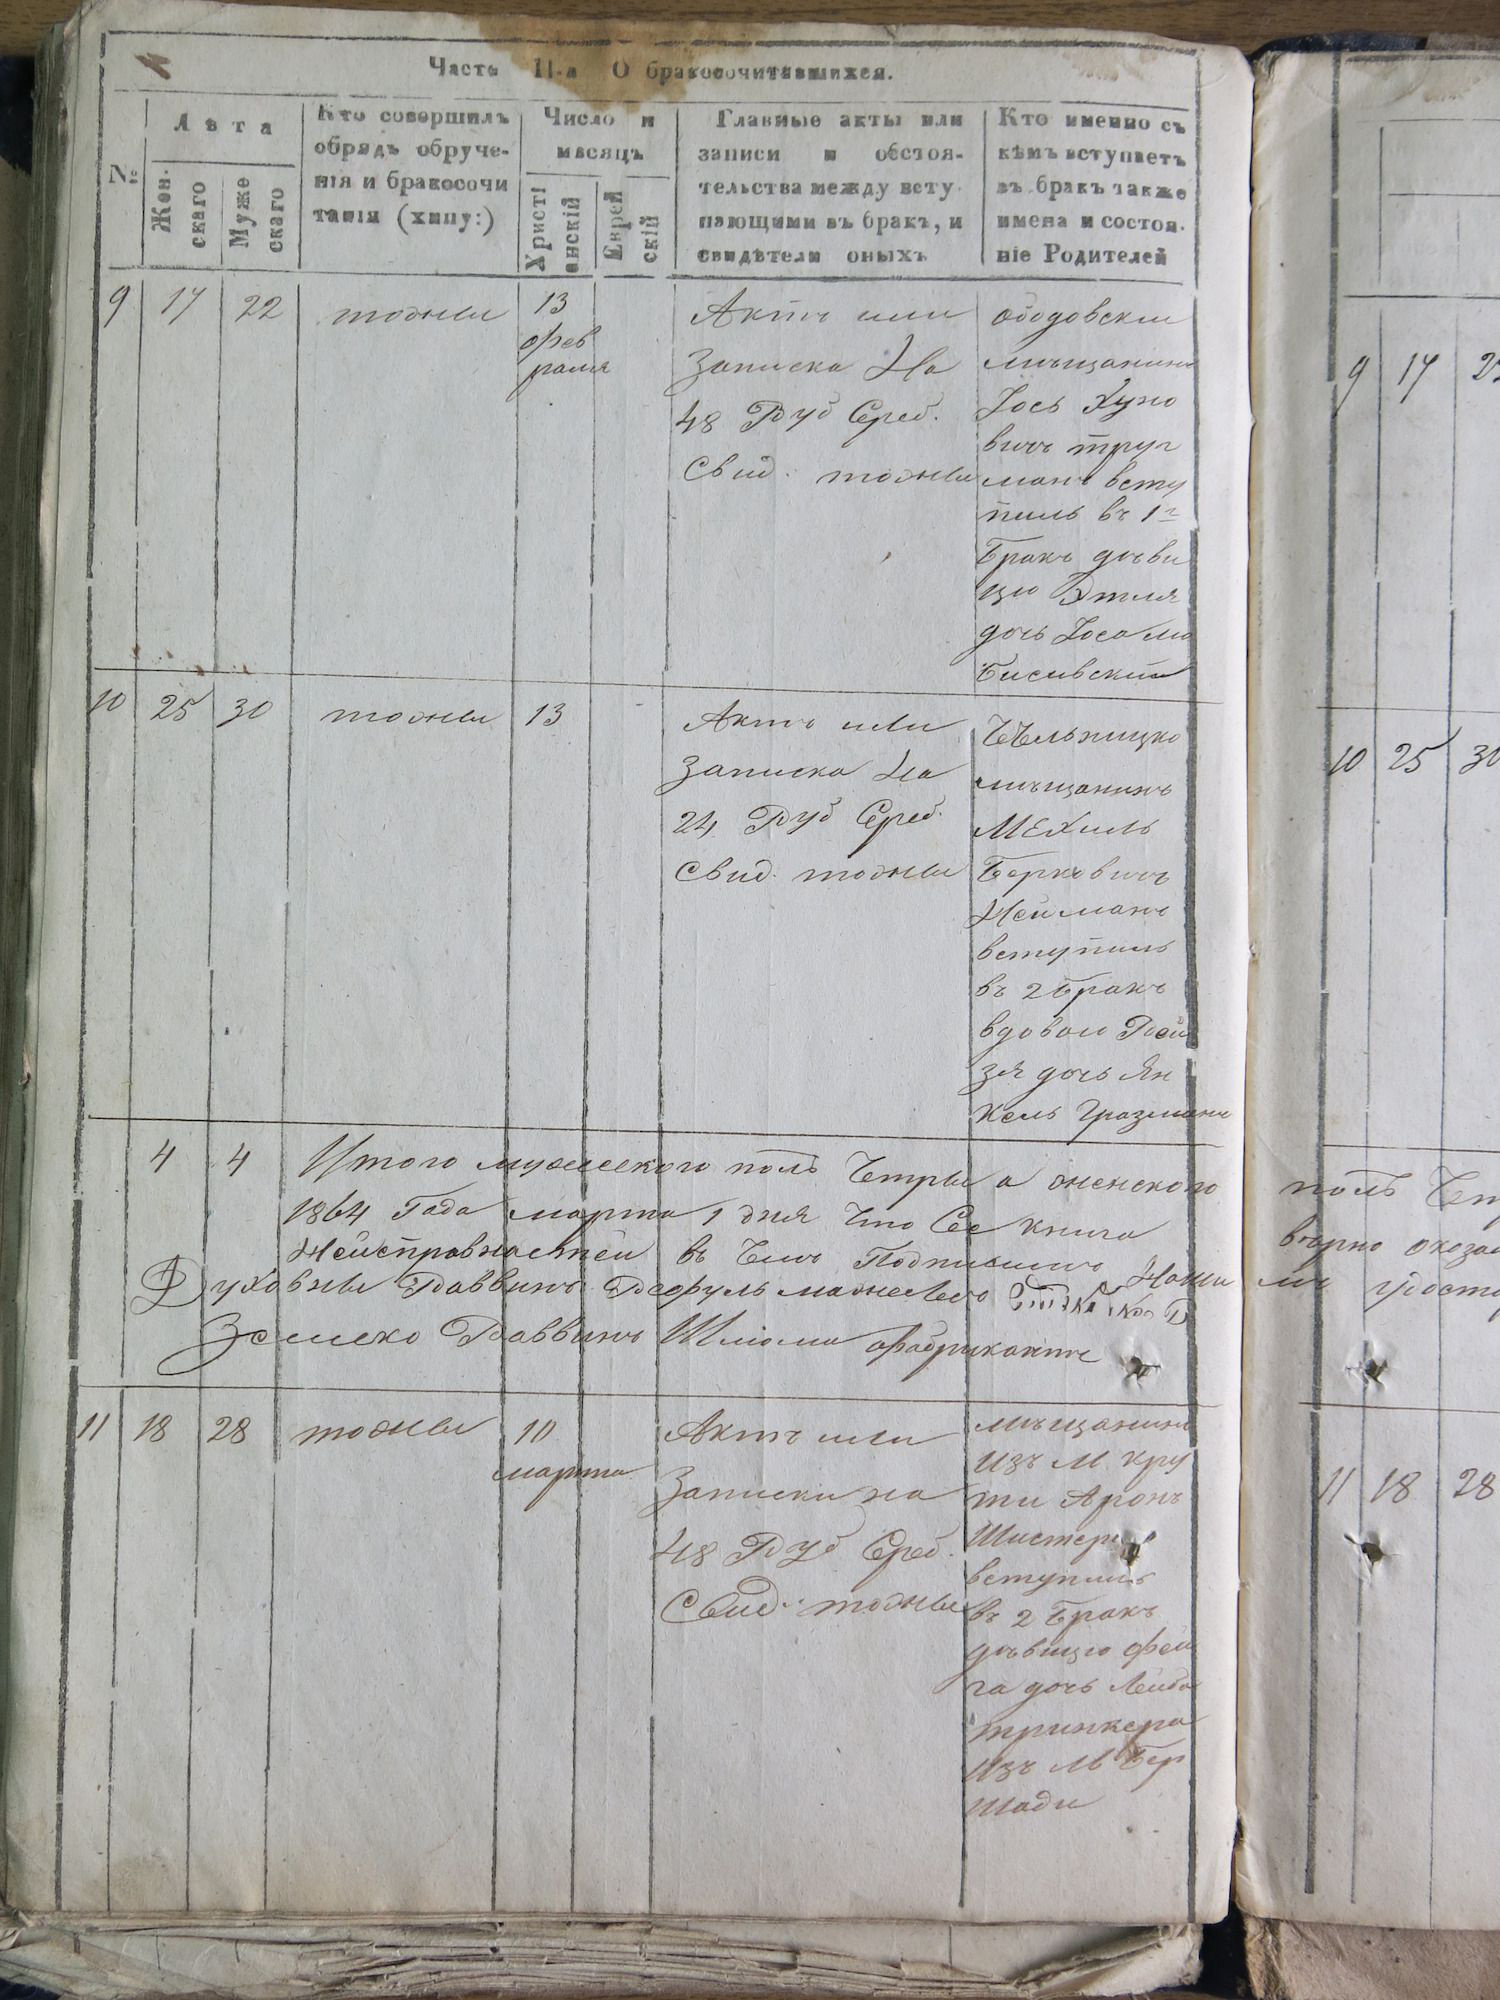 Часть II-я О бракосочитавшихся.
№
Лѣта
Жен-
скаго
Муже
скаго
Кто совершилъ
обрядъ обруче-
нія и бракосочи
танія (хипу:)
Число и
мѣсяцъ
Христі
анскій
Еврей
скій
Главные акты или
записи и обстоя-
тельства между всту-
пающими въ бракъ, и
свидѣтели оныхъ
Кто именно съ
кѣмъ вступаетъ
въ бракъ также
имена и состоя-
ніе Родителей
9 17 22 тожны
13
фев
раля
Актъ или
Записка На
48 Руб Сереб.
Свид. тожны
ободовскы
мѣщанинъ
Іось Хуно
вичъ труг
манъ всту
пилъ въ 1й
Бракъ дѣви
цю Этля
дочь Іося
10 25 30 тожны 13
Актъ или
Записка На
24 Руб Сереб.
Свид. тожны
мѣщанинъ
Мехиль
Берковичъ
Нейманъ
вступилъ
въ 2 Бракъ
вдовою Рей
зя дочь Ян
кель Гразмана
4 4 Итого мужеского полъ Четры а женского
1864 Года марта 1 дня Что Сее книга
Нейстправностей въ Чимъ Подписимъ Наши
Духовны Раввинъ
Земско Раввинъ Шліома Фабрикантъ
11 18 28 тожны
10
марта
Актъ или
Записки на
48 Руб Сереб.
Свид. тожны
мѣщанинъ
изъ М Кру
ти Аронъ
Шистер
вступилъ
въ 2 Бракъ
дѣвицю Фей
га дочь Лейба
тринкера
изъ М Бер
шади
9 17
10 25 30
полъ
вѣрно
11 18 28